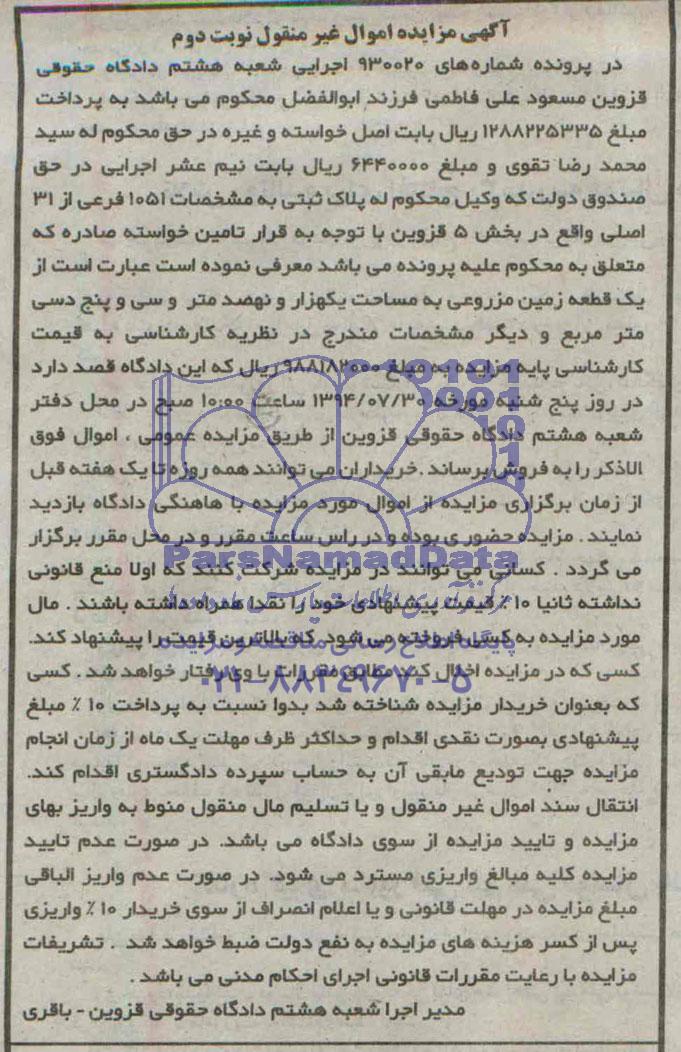 آگهی مزایده اموال غیر منقول نوبت دوم
در پرونده شماره های ۹۳۰۰۲۰ اجرایی شعبه هشتم دادگاه حقوقی
قزوین مسعود علی فاطمی فرزند ابوالفضل محکوم می باشد به پرداخت
مبلغ ۱۲۸۸۲۲۵۳۳۵ ریال بابت اصل خواسته و غیره در حق محکوم له سید
محمد رضا تقوی و مبلغ ۶۴۴۰۰۰۰ ریال بابت نیم عشر اجرایی در حق
صندوق دولت که وکیل محکوم له پلاک ثبتی به مشخصات ۱۰۵۱ فرعی از ۳۱
اصلی واقع در بخش ۵ قزوین با توجه به قرار تامین خواسته صادره که
متعلق به محکوم علیه پرونده می باشد معرفی نموده است عبارت است از
یک قطعه زمین مزروعی به مساحت یکهزار و نهصد متر و سی و پنج دسی
متر مربع و دیگر مشخصات مندرج در نظریه کارشناسی به قیمت
کارشناسی پایه مزایده به مبلغ ۹۸۸۱۸۲۰۰۰ ریال که این دادگاه قصد دارد
در روز پنج شنبه مورخه ۱۳۹۴/۰۷/۳۰ ساعت ۱۰:۰۰ صبح در محل دفتر
شعبه هشتم دادگاه حقوقی قزوین از طریق مزایده عمومی ، اموال فوق
الاذکر را به فروش برساند .خریداران می توانند همه روزه تا یک هفته قبل
از زمان برگزاری مزایده از اموال مورد مزایده با هاهنگی دادگاه بازدید
نمایند . مزایده حضوری بوده و در راس ساعت مقرر و در محل مقرر برگزار
ParsNamadData
می گردد . کسانی می توانند در مزایده شرکت کنند که اولا منع قانونی
نداشته ثانیا ۱۰٪ قیمت پیشنهادی خود را نقدا همراه داشته باشند . مال
مورد مزایده به کسی فروخته می شود که بالاترین قیمت را پیشنهاد کند.
پایگاه اطلاع رسانی مناقصه و مزایده
کسی که در مزایده اخلال کند مطابق مقررات با وی رفتار خواهد شد . کسی
۰۲۱-۸۸۳۴۹۶۷۰-۵
که بعنوان خریدار مزایده شناخته شد بدوا نسبت به پرداخت ۱۰ ٪ مبلغ
پیشنهادی بصورت نقدی اقدام و حداکثر ظرف مهلت یک ماه از زمان انجام
مزایده جهت تودیع مابقی آن به حساب سپرده دادگستری اقدام کند.
انتقال سند اموال غیر منقول و یا تسلیم مال منقول منوط به واریز بهای
مزایده و تایید مزایده از سوی دادگاه می باشد. در صورت عدم تایید
مزایده کلیه مبالغ واریزی مسترد می شود. در صورت عدم واریز الباقی
مبلغ مزایده در مهلت قانونی و یا اعلام انصراف از سوی خریدار ۱۰ ٪ واریزی
پس از کسر هزینه های مزایده به نفع دولت ضبط خواهد شد . تشریفات
مزایده با رعایت مقررات قانونی اجرای احکام مدنی می باشد .
مدیر اجرا شعبه هشتم دادگاه حقوقی قزوین - باقری